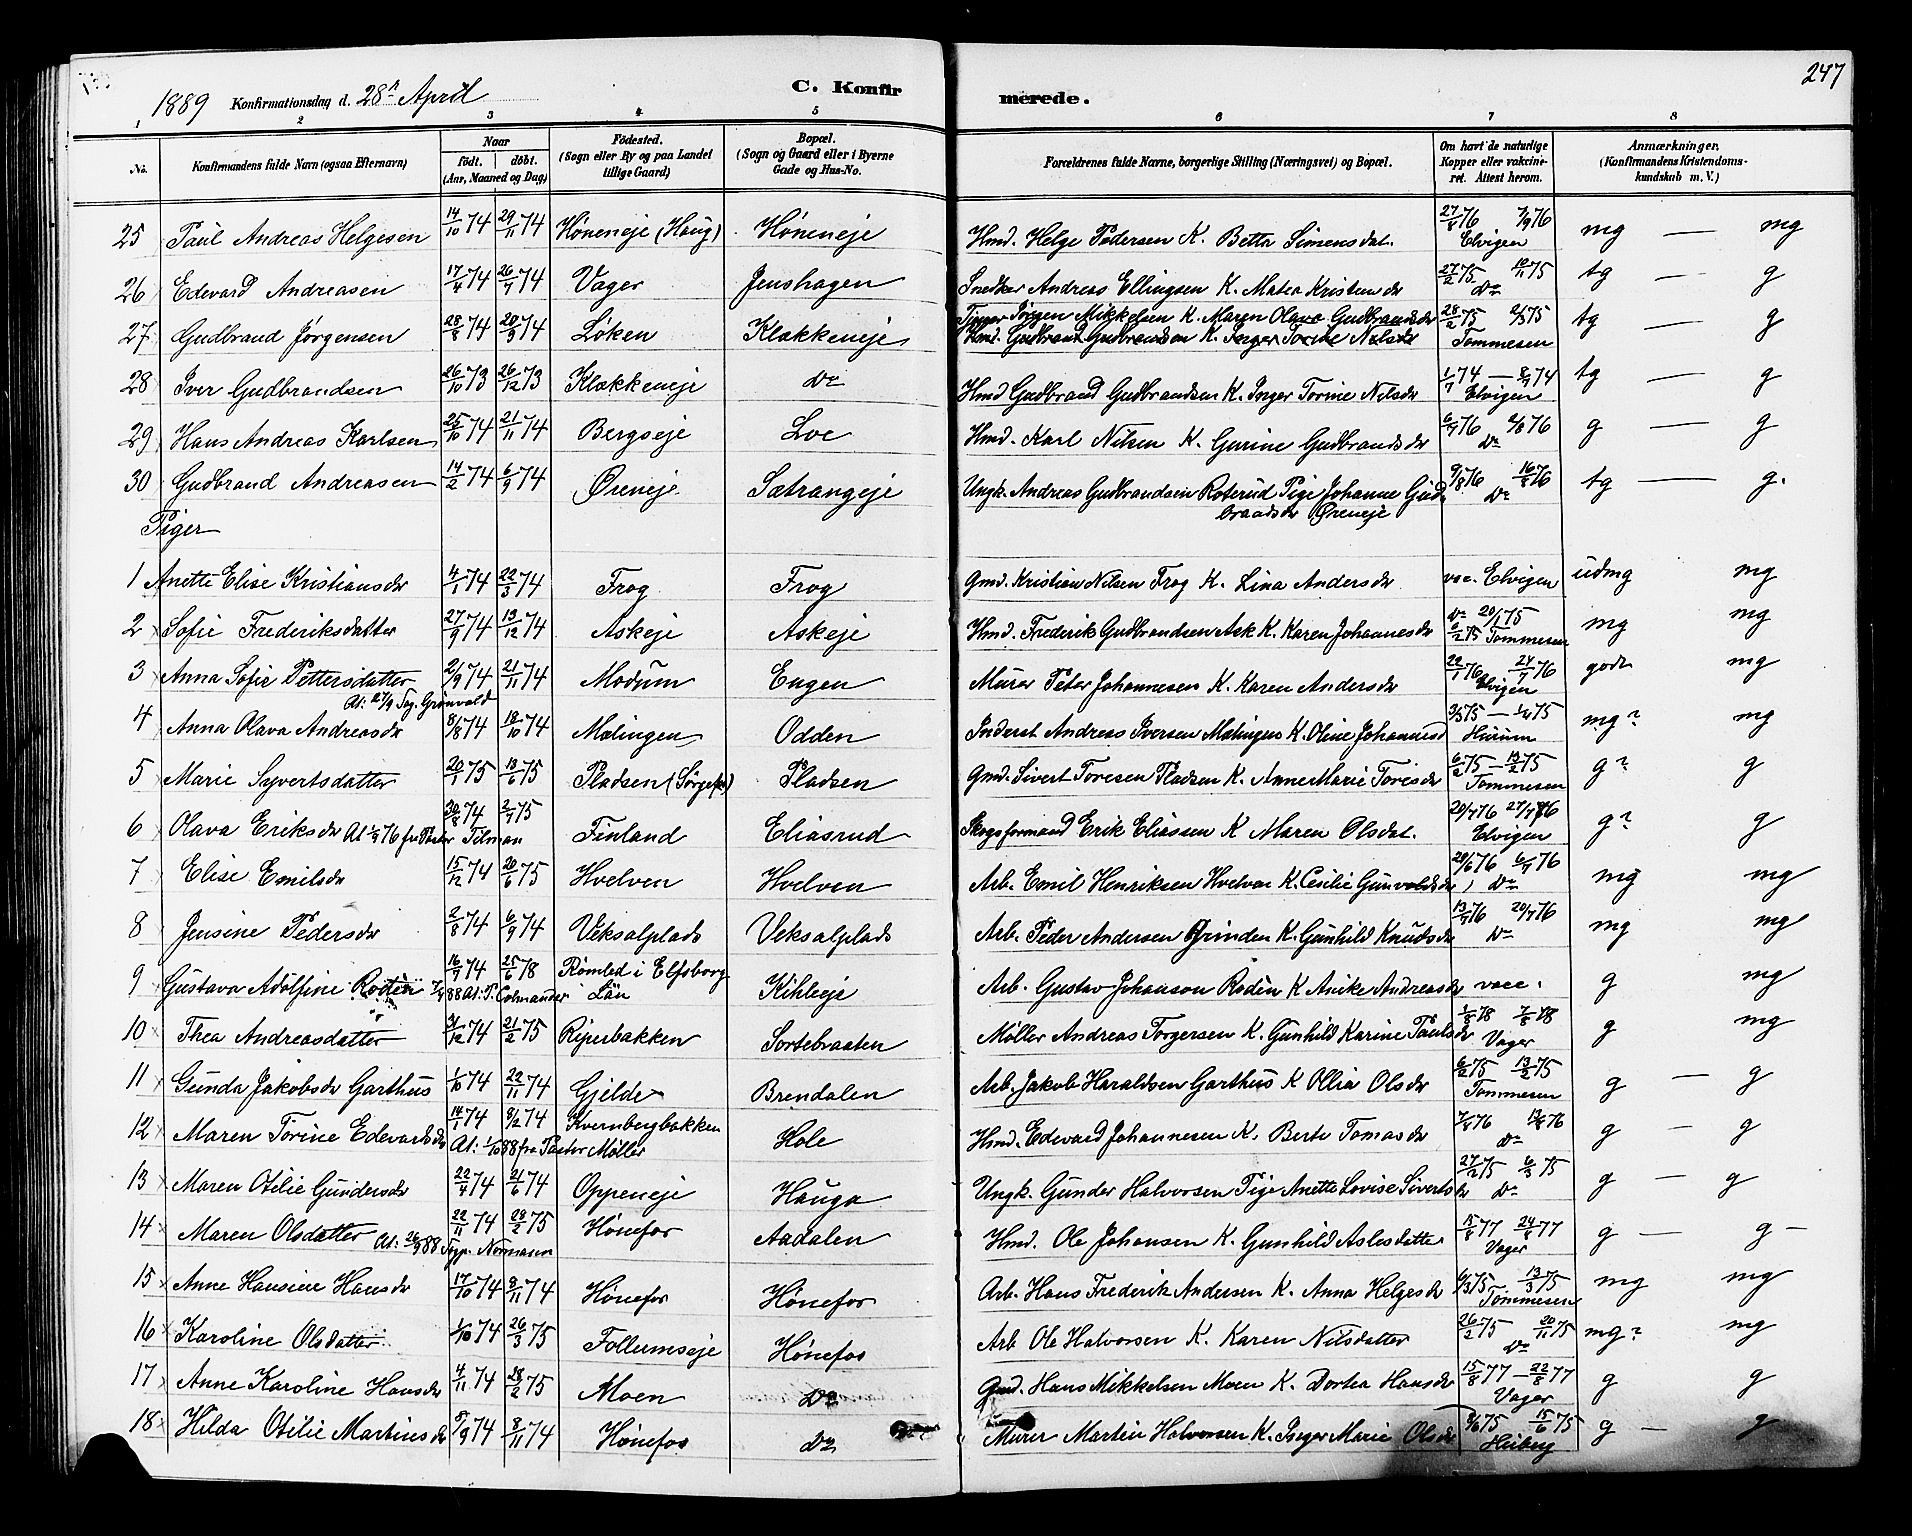 247
1889 Konfirmationsdag d. 28de April C. Konfirmerede.
1 2 3 4 5 6 7 8
No. Konfirmandens fulde Navn (ogsaa Efternavn) Naar født. døbt. (Aar, Maaned og Dag) Fødested. (Sogn eller By og paa Landet tillige Gaard) Bopæl. (Sogn og Gaard eller i Byerne Gade og Hus-No. Forældrenes fulde Navne, borgerlige Stilling (Næringsvei) og Bopæl. Om havt de naturlige Kopper eller vakcineret. Attest herom. Anmærkninger. (Konfirmandens Kristendomskundskab m. V.)
25 Paul Andreas Helgesen 14/10 74 29/11 74 Høneneje (Haug) Høneneje Hmd. Helge Pedersen K. Betta Simensdat. 27/8 76 7/9 76 Elvigen mg — mg
26 Edevard Andreasen 17/4 74 26/7 74 Vager Jenshagen Snedker Andreas Ellingsen K. Matea Kristensdr 27/2 75 Do tg — g
27 Gudbrand Jørgensen 28/8 74 20/9 74 Løken Klækkeneje Jørgen Mikkelsen K. Maren Olava Gudbrandsdr 28/2 75 Tommesen tg — g
Hmd. Gudbrand Gudbrandsen K. Inger Torine Nilsdr
28 Iver Gudbrandsen 26/10 73 26/12 73 Klækkeneje Do Hmd Gudbrand Gudbrandsen K. Inger Torine Nilsdr 1/7 74 — 8/7 74 Elvigen tg — g
29 Hans Andreas Karlsen 25/10 74 21/11 74 Bergseje Loe Hmd. Karl Nilsen K. Gurine Gudbrandsdr 6/7 76 Do g — g
30 Gudbrand Andreasen 14/2 74 6/9 74 Øreneje Sætrangeje Ungk. Andreas Gudbrandsen Roterud Pige Johanne Gudbrandsdr Øreneje 9/8 76 16/8 76 Do tg — g.
Piger
1 Anette Elise Kristiansdr 4/1 74 22/3 74 Frog Frog Gmd. Kristian Nilsen Frog K. Lina Andersdr vac. Elvigen udmg mg
2 Sofie Frederiksdatter 27/9 74 13/12 74 Askeje Askeje Hmd. Frederik Gudbrandsen Ask K. Karen Johannesdr Do 20/1 75 Tommesen mg mg
3 Anna Sofie Pettersdatter 2/9 74 21/11 74 Modum Engen Murer Peter Johannesen K. Karen Andersdr 22/1 76 Elvigen godt mg
At: 27/9 Sog. Grønvold
4 Anna Olava Andreasdr 8/8 74 18/10 74 Mælingen Odden Inderst Andreas Iversen Mælingen K. Oline Johannesd 3/3 75 — 1/4 75 Hurum mg? mg
5 Marie Syvertsdatter 20/1 75 13/6 75 Pladsen Pladsen Gmd. Sivert Toresen Pladsen K. Anne Marie Toresdr 6/2 75 — 13/2 75 Tommesen g? g
6 Olava Eriksdr 30/8 74 2/7 75 Finland Eliasrud Skogsformand Erik Eliassen K Maren Olsdat. 20/7 76 27/7 76 Elvigen g? g
7 Elise Emilsdr 15/12 74 20/6 75 Hvelven Hvelven Arb. Emil Henriksen Hvelven K. Cesilie Gunvaldsdr 29/6 76 6/7 76 Do mg mg
8 Jensine Pedersdr 2/8 74 6/9 74 Veksalplads Veksalplads Arb. Peder Andersen Grinden K. Gunhild Knudsdr 13/7 76 20/7 76 Do mg mg
9 Gustava Adolfine Rodén 16/7 74 25/6 78 Rømled i Elfsborg Län Kihleeje Arb. Gustav Johanson Rodén K Anike Andreasdr vacc. g mg
10 Thea Andreasdatter 21/2 75 Riperbakken Sortebraaten Møller Andreas Torgersen K. Gunhild Karine Paulsdr 1/8 78 Vager g mg
11 Gunda Jakobsdr Garthus 1/10 74 22/11 74 Gjelde Brendalen Arb. Jakob Haraldsen Garthus K Ollia Olsdr 6/2 75 13/2 75 Tommesen g — g
12 Maren Torine Edevardsdr 14/1 74 8/2 74 Kvernbergbakken Hole Hmd. Edevard Johannesen K. Berte Tomasdr Do g — g
At: 1/10 88 fra Pastor Møller
13 Maren Otilie Gundersdr 22/4 74 21/6 74 Oppeneje Hauga Ungk. Gunder Halvorsen Pige Anette Lovise Sivertsdr 27/2 75 6/3 75 Do g — g
14 Maren Olsdatter 22/11 74 28/2 75 Hønefos Aadalen Hmd. Ole Johansen K. Gunhild Aslesdatter 15/8 77 24/8 77 Vager g — g —
15 Anne Hansine Hansdr 17/10 74 8/11 74 Hønefos Hønefos Arb. Hans Frederik Andersen K. Anna Helgesdr 6/3 75 13/3 75 Tommesen mg mg
16 Karoline Olsdatter 1/10 74 26/3 75 Follumseje Hønefos Arb Ole Halvorsen K. Karen Nilsdatter 26/2 75 20/11 75 Do mg? mg
17 Anne Karoline Hansdr 4/11 74 28/2 75 Moen Do Gmd. Hans Mikkelsen Moen K. Dortea Hansdr 15/8 77 — 22/8 77 Vager g g
18 Hilda Otilie Martinsdr 5/9 74 8/11 74 Hønefos Do Murer Martin Halvorsen K. Inger Marie Olsdr 8/6 75 15/6 75 Heiberg g — g